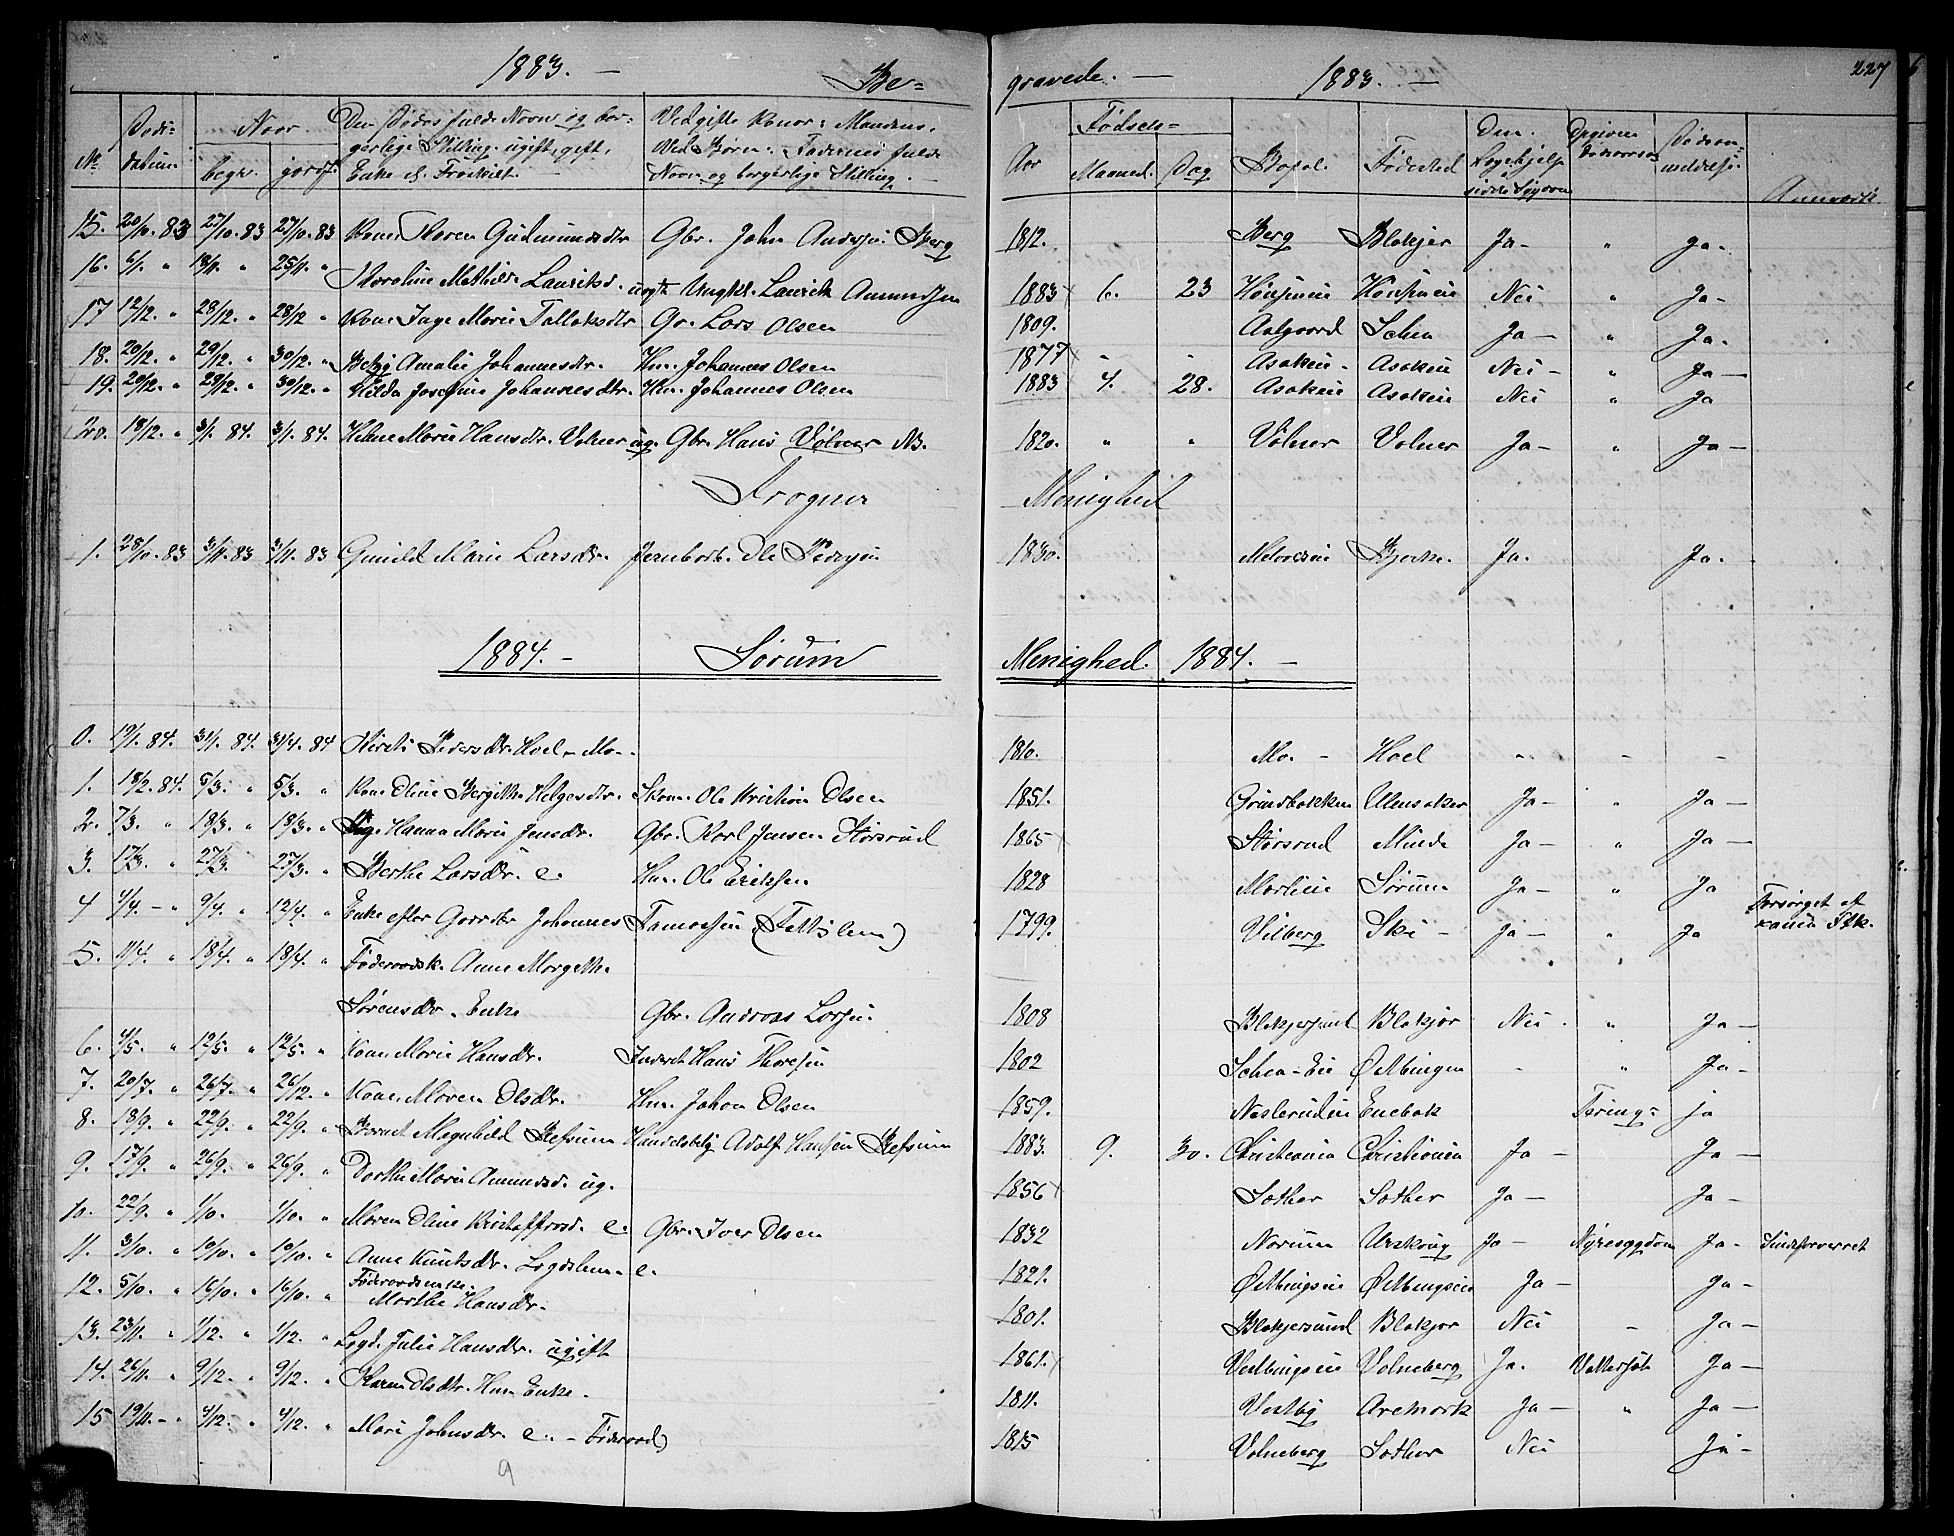 1883. — Be= gravede. — 1883. — 227
No. Døds= datum Naar begr. jordf. Den Dødes fulde Navn og bor= gerlige Stilling, ugift, gift, Enke el. Fraskilt Ved gifte Koner: Mandens, Ved Børn: Faderens fulde Navn og borgerlige Stilling. Fødsels= Aar Maaned. Dag Bopæl. Fødested Den Lægehjelp Opgiven Dødsaarsag Dødsan= meldelse. Anmærk.
15. 20/10. 83 27/10. 83 27/10. 83 Kone Maren Gudmundsdtr Gbr. John Andersen Berg 1812. Berg Blakjer Ja - " Ja -
16. 6/11. " 18/11. " 25/11. " Karoline Mathilde Lauritsd. uægte Ungkl. Laurits Amundsen 1883 6. 23 Hønsneie Hønsneie Nei " Ja -
17 12/12. " 28/12. " 28/12 " Kone Inge Marie Tollaksdtr Gr. Lars Olsen 1809. Aalgaard Schea Ja — " Ja.
18. 20/12. " 29/12. " 30/12. " Betzy Amalie Johannesdtr. Hm. Johannes Olsen 1877 " " Asakeie - Asakeie Nei - " Ja —
19. 20/12. " 29/12. " 30/12. " Hilda Josefine Johannesdtr. Hm. Johannes Olsen 1883 4. 28. Asakeie Asakeie Nei " Ja
20. 18/12. " 3/1. 84. 3/1. 84. Helene Marie Hansdtr. Valner ug. Gbr. Hans Vølner No. 1820. " " Vølner Volner Ja — " Ja —
Frogner Menighed
1. 28/10. 83 3/11. 83 3/11. 83 Gunild Marie Larsdtr. Jernbarb. Ole Pedersen 1830. Bjerke. Ja. Ja.
1884. - Sørum Menighed. 1884. —
0. 19/1. 84. 31/1. 84. 31/4. 84 Kirsti Pedersdtr. Hoel - Mo - 1810. Mo. - Hoel " - -
1. 18/2. 84. 5/3. " 5/3. " Kone Oline Bergitte Helgesdtr. Skom. Ole Kristian Olsen 1851. Grindbakken Ullensaker Ja - " Ja —
2. 7/3. " 18/3. " 18/3. " Pig. Hanna Marie Jensdtr. Gbr. Karl Jensen Størsrud 1865 Størsrud Minde Ja - " Ja —
3. 17/3. " 27/3. 27/3. " Berthe Larsdtr. e. Hm. Ole Eriksen 1828 Marlieie Sørum Ja - " Ja
4 4/4. - " 9/4. " 12/4. " Enke efter Gaardbr Johannes Tamassen (Fattiglem) 1799. Vilberg Ski - Ja - " Ja Forsørget af
5. 11/4. " 18/4. " 18/4. " Føderaadsk. Anne Margethe
Sørensdtr. Enke Gbr. Andreas Larsen. 1808 Blakjersund Blakjer Nei . " Ja —
6. 4/5. " 12/5. " 12/5. " Kone Marie Hansdtr. Inderst Hans Thoresen 1802 Schea - Eie Østbingen - " Ja -
7. 20/7. " 26/7. " 26/12. " Kone Maren Olsdtr. Hm. Johan Olsen 1859. Naslerudeie Enebak Tæring - ja
8. 18/9. " 22/9. " 22/9. " Borred Magnhild Refsum Handelsbetj. Adolf Hansen Refsum 1883. 9. 30. Christiania Christiania Ja — Ja —
9. 17/9. " 26/9. " 26/9. " Dorthe Marie Amundsd. ug. 1856 Sother Sother Ja — Ja -
10. 22/9. " 1/10. 1/10. " Maren Oline Kristoffersd. e. Gbr. Iver Olsen 1832 Norum Urskoug Ja - Nyresygdom Ja - Sindsforvirret
11. 3/10. " 10/10. " 10/10. " Anne Knutsdtr. Lægdslem - e. 1821. Østbingseie Østbingseie Ja - Ja -
12. 5/10. " 16/10. " 16/10. " Føderaadsenke. Marthe Hansdtr. 1801. Blakjersund Blakjer Nei - Ja -
13. 23/11. " 1/12. " 1/12. " Lægd. Julie Hansdtr. ugift 1861. Vestbingseie Valneberg Ja. Vattersot Ja —
14. 26/11. " 9/12. " 9/12. " Karen Olsdtr. Hm. Enke - 1811. Vestby Aremark Ja — " Ja —
15 19/11. - " 4/12. " 4/12. " Mari Johnsdtr. e. - Føderaad) 1815 Valneberg Sother Nei Ja -
9